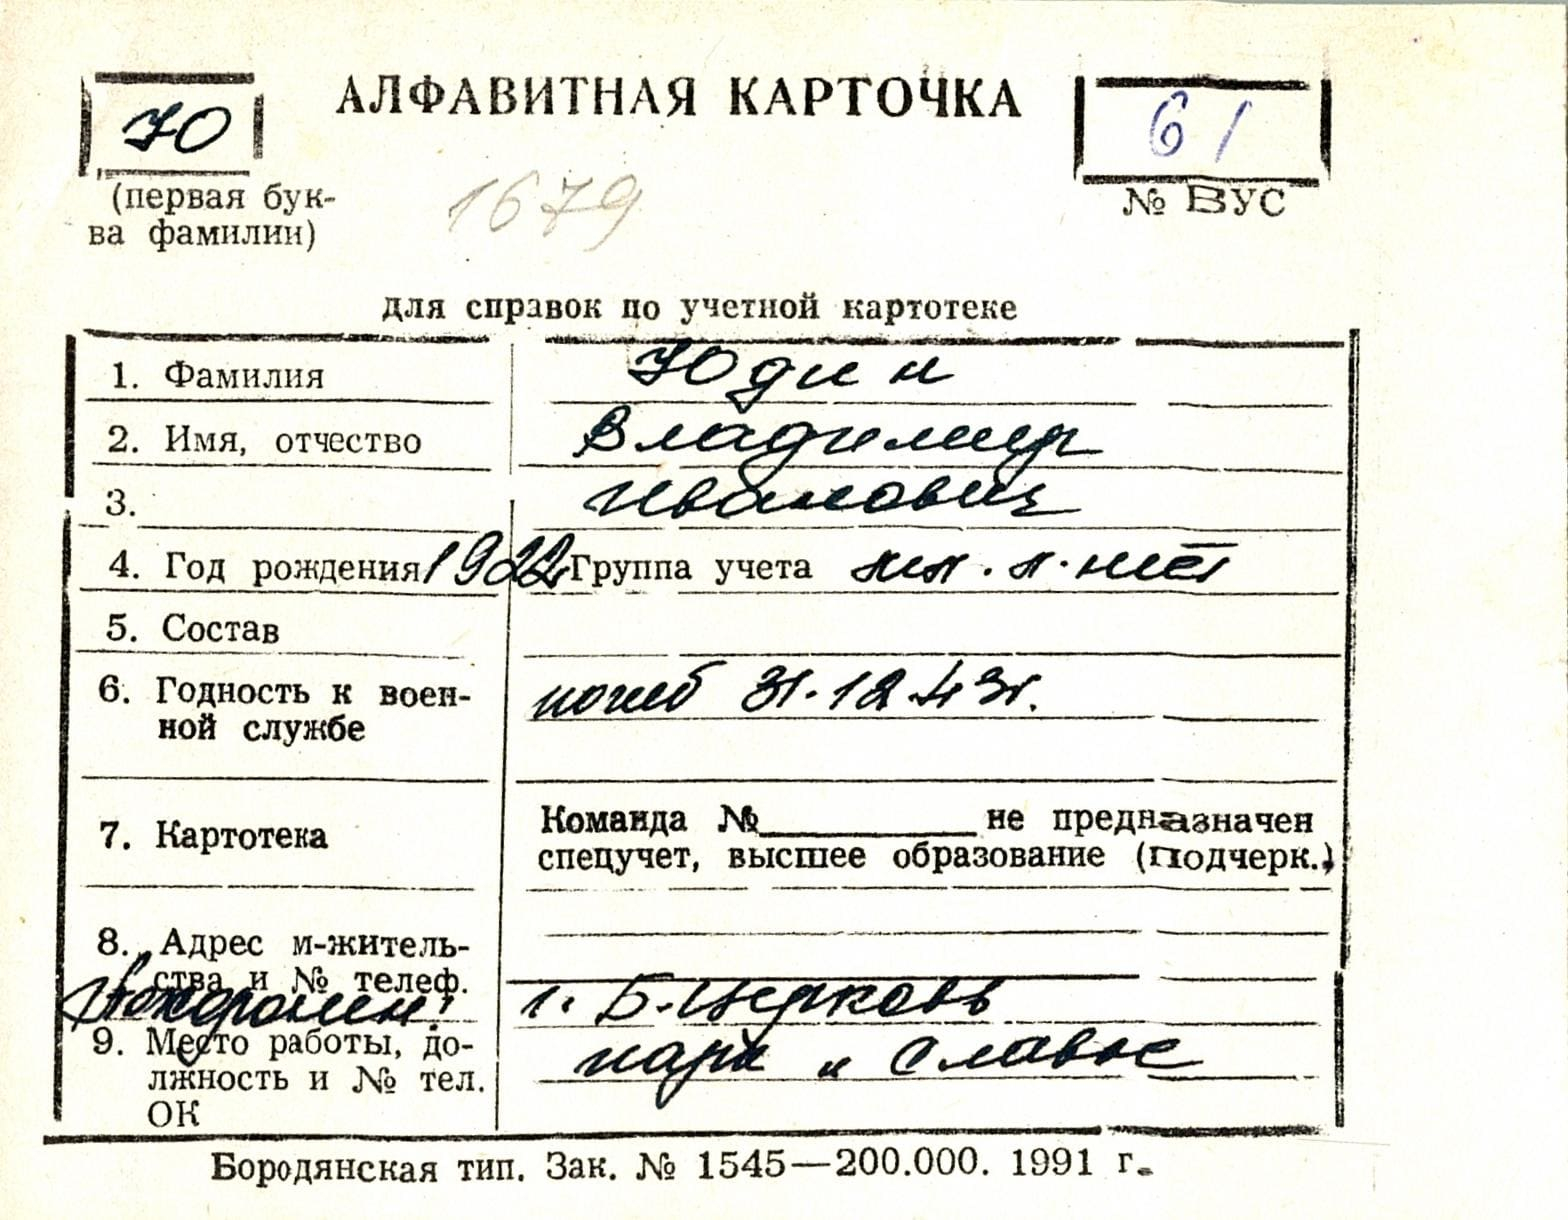 АЛФАВИТНАЯ КАРТОЧКА
Ю
61
(первая бук-
ва фамилии)
№ ВУС
1679
для справок по учетной картотеке
1. Фамилия Юдин
2. Имя, отчество Владимир
3. Иванович
4. Год рождения 1922 Группа учета мл. л-нт
5. Состав
6. Годность к воен-
ной службе погиб 31.12.43г.
7. Картотека
Команда №__________ не предназначен
спецучет, высшее образование (подчерк.)
8. Адрес м-житель-
ства и № телеф.
Похоронен: г. Б.Церковь
9. Место работы, до-
лжность и № тел.
ОК
парк "Славы
Бородянская тип. Зак. № 1545—200.000. 1991 г.